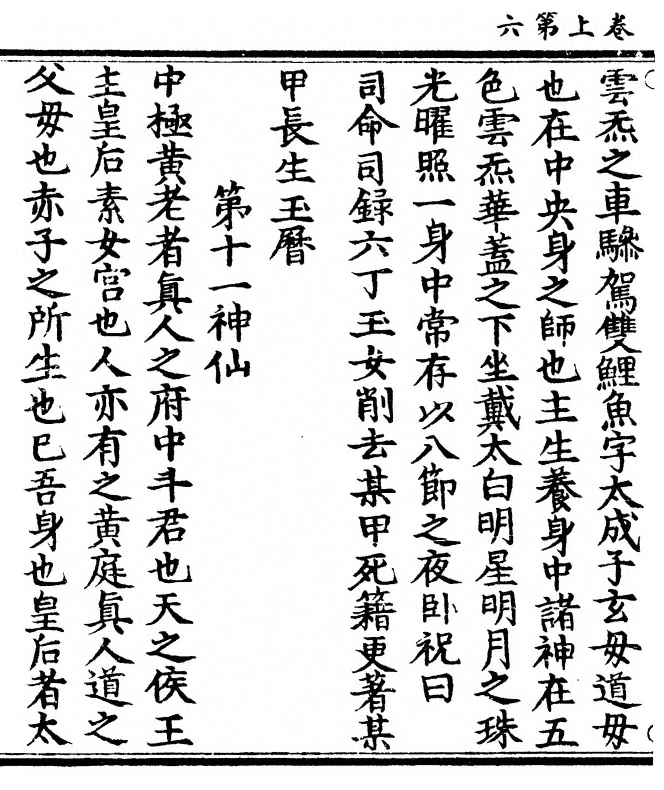 卷上第六
雲炁之車驂駕雙鯉魚字太成子玄毋道毋
也在中央身之師也主生養身中諸神在五
色雲炁華蓋之下坐戴太白明星明月之珠
光曜照一身中常存以八節之夜卧祝曰
司命司錄六丁玉女削去某甲死籍更著某
甲長生玉曆
第十一神仙
中極黃老者眞人之府中斗君也天之侯王
主皇后素女宮也人亦有之黃庭眞人道之
父毋也赤子之所生也巳吾身也皇后者太